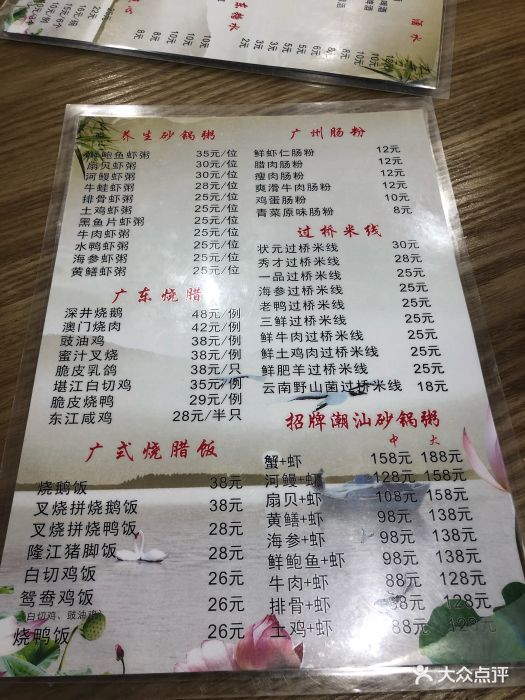 养生砂锅粥
鲜鲍鱼虾粥 35元/位
扇贝虾粥 30元/位
河鳗虾粥 30元/位
牛蛙虾粥 28元/位
排骨虾粥 25元/位
土鸡虾粥 25元/位
黑鱼片虾粥 25元/位
牛肉虾粥 25元/位
水鸭虾粥 25元/位
海参虾粥 25元/位
黄鳝虾粥 25元/位
广东烧腊
深井烧鹅 48元/例
澳门烧肉 42元/例
豉油鸡 38元/例
蜜汁叉烧 38元/例
脆皮乳鸽 38元/只
堪江白切鸡 35元/例
脆皮烧鸭 29元/例
东江咸鸡 28元/半只
广式烧腊饭
烧鹅饭 38元
叉烧拼烧鹅饭 38元
叉烧拼烧鸭饭 28元
隆江猪脚饭 28元
白切鸡饭 26元
鸳鸯鸡饭 26元
(白切鸡、豉油鸡)
烧鸭饭 26元
广州肠粉
鲜虾仁肠粉 12元
腊肉肠粉 12元
瘦肉肠粉 12元
爽滑牛肉肠粉 12元
鸡蛋肠粉 10元
青菜原味肠粉 8元
过桥米线
状元过桥米线 30元
秀才过桥米线 28元
一品过桥米线 25元
海参过桥米线 25元
老鸭过桥米线 25元
三鲜过桥米线 25元
鲜牛肉过桥米线 25元
鲜土鸡肉过桥米线 25元
鲜肥羊过桥米线 25元
云南野山菌过桥米线 18元
招牌潮汕砂锅粥
中 大
蟹+虾 158元 188元
河鳗+虾 128元 158元
扇贝+虾 108元 158元
黄鳝+虾 98元 138元
海参+虾 98元 138元
鲜鲍鱼+虾 98元 138元
牛肉+虾 88元 128元
排骨+虾 88元 128元
土鸡+虾 88元 128元
大众点评